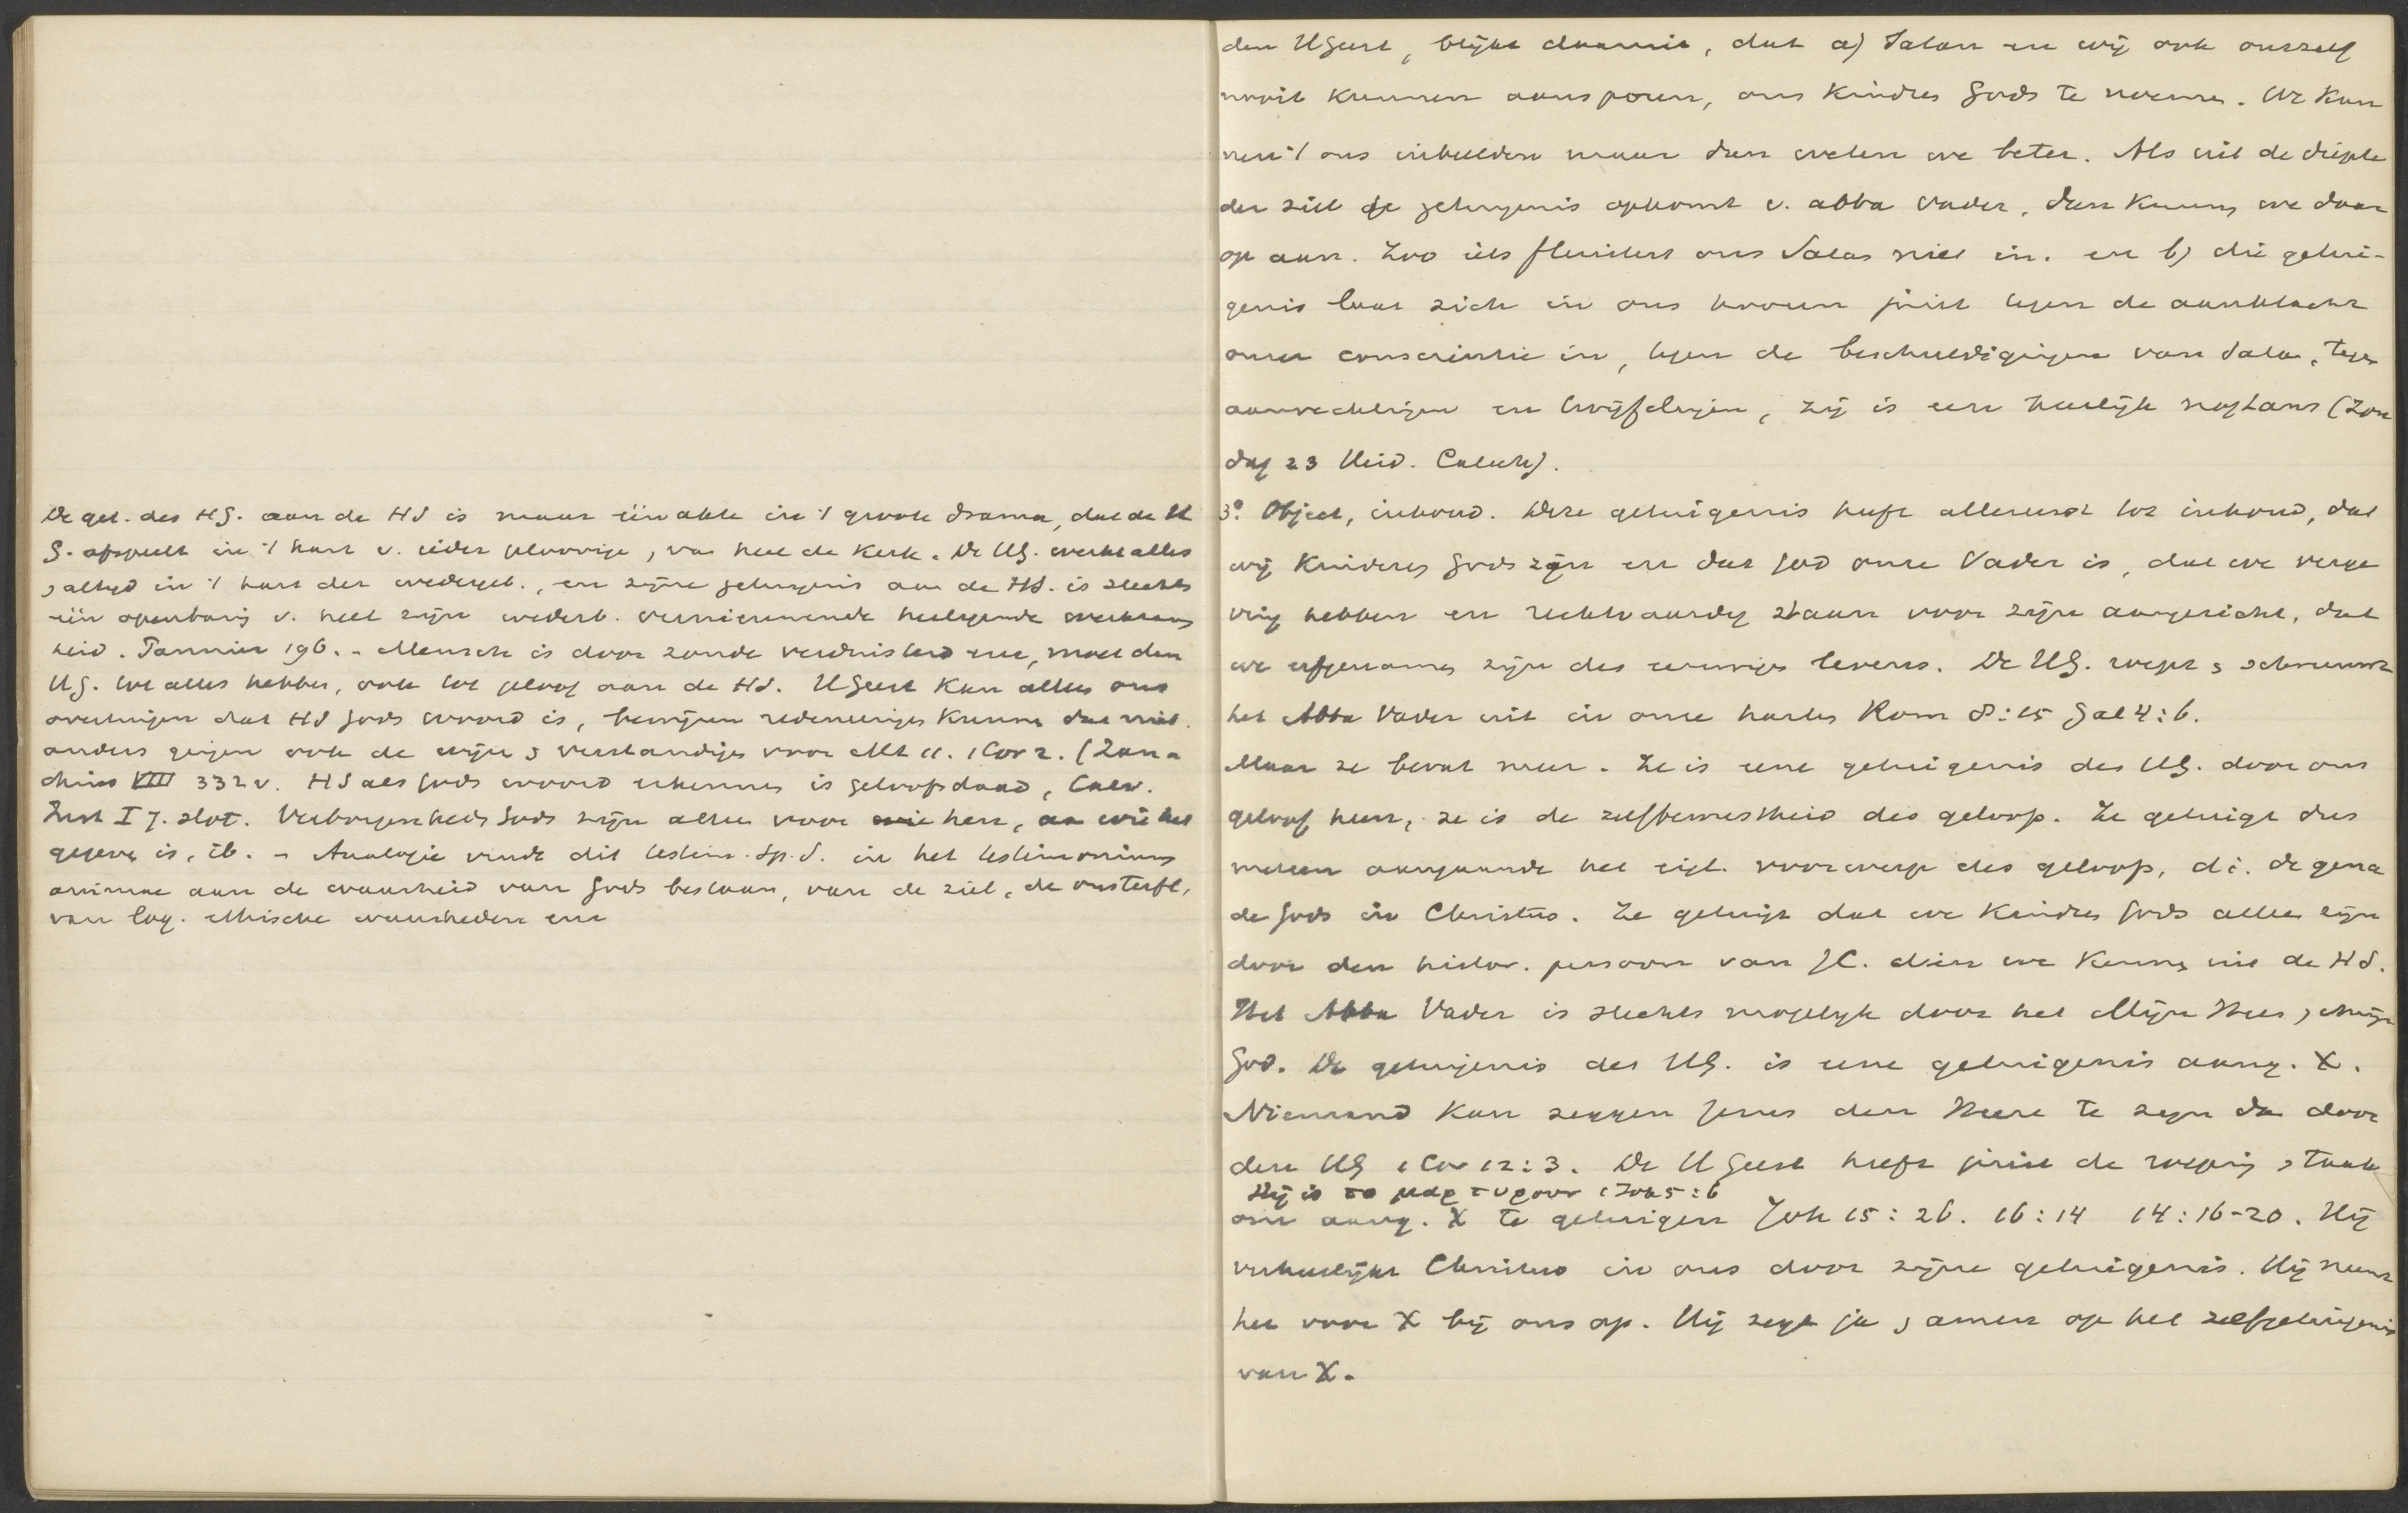 De get. des HG. aan de HS is maar één akte in 't groote drama, dat de H
G. afspeelt in 't hart v. ieder geloovige, van heel de Kerk. De HG. werkt alles
altyd in 't hart der wedergeb., en zijne getuigenis aan de HS. is slechts
één openbaring v. heel zijne wederb. vernieuwende heiligende werkzaam
heid. Pannier 196. - Mensch is door zonde verduisterd enz, moet den
HG. tot alles hebben, ook tot geloof aan de HS. HGeest Kan alleen ons
overtuigen dat HS Gods woord is, bewijzen redeneeringen Kunnen dat niet.
anders gingen ook de wijzen & verstandigen voor Mt 11. 1 Cor 2. (Zan-
chius VIII 332 v. HS als Gods woord erkennen is geloofsdaad, Calv.
Inst I 7. slot. Verborgenheden Gods zijn alleen voor hen, aan wie het
gegeven is, ib. - Analogie vindt dit testim. Sp. S. in het testimonium
animae aan de waarheid van Gods bestaan, van de ziel, de onsterfl,
van log. ethische waarheden enz
den HGeest, blijkt daaruit, dat a) Satan en wij ook onszelf
nooit kunnen aansporen, ons Kindren Gods te noemen. We Kun
nen 't ons inbeelden maar dan weten we beter. Als uit de diepte
der ziel de getuigenis opkomt v. abba vader, dan Kunnen we daar
op aan. Zoo iets fluistert ons Satan niet in. en b) die getui-
genis laat zich in ons hooren juist tegen de aanklacht
onzer conscientie in, tegen de beschuldigingen van Satan, tegen
aanvechtingen en twijfelingen, zij is een heerlijk nogtans (Zon
dag 23 Heid. Catech).
3°. Object, inhoud. Deze getuigenis heeft allereerst tot inhoud, dat
wij Kinderen Gods zijn en dat God onze Vader is, dat we verge
ving hebben en rechtvaardig staan voor zijn aangezicht, dat
we erfgenamen zijn des eeuwigen levens. De HG. roept & schreeuwt
het Abba Vader uit in onze harten Rom 8:15 Gal 4:6.
Maar ze bevat meer. Ze is eene getuigenis des HG. door ons
geloof heen, ze is de zelfbewustheid des geloofs. Ze getuigt dus
meteen aangaande het eigl. voorwerp des geloofs, di. de gena
de Gods in Christus. Ze getuigt dat we Kindren Gods alleen zijn
door den histor. persoon van JC. dien we Kennen uit de HS.
Het Abba Vader is slechts mogelyk door het Mijn Heer, Mijn
God. De getuigenis des HG. is eene getuigenis aang. X.
Niemand Kan zeggen Jezus den Heere te zijn dan door
den HG 1 Cor 12:3. De HGeest heeft juist de roeping & taak
Hij is το μαρτυρουν 1 Joh 5:6
om aang. X te getuigen Joh 15:26. 16:14 14:16-20. Hij
verheerlijkt Christus in ons door zijne getuigenis. Hij neemt
het voor X bij ons op. Hij zegt ja & amen op het zelfgetuigenis
van X.